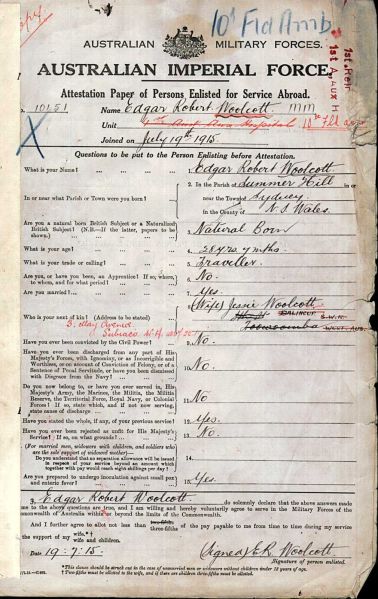 Copy
10th Fld Amb
AUSTRALIAN MILITARY FORCES.
AUSTRALIAN IMPERIAL FORCE
1st Rein
1st A. Aux H
Attestation Paper of Persons Enlisted for Service Abroad.
No. 10151 Name Edgar Robert Woolcott MM
Unit Hospital 10th Fld Amb
Joined on July 19th 1915.
Questions to be put to the Person Enlisting before Attestation.
What is your Name? 1. Edgar Robert Woolcott
In or near what Parish or Town were you born? 2. In the Parish of Summer Hill in or
near the Town of Sydney
in the County of N. S. Wales.
Are you a natural born British Subject or a Naturalized
British Subject? (N.B.—If the latter, papers to be
shown.) 3. Natural Born
What is your age? 4. 28 yrs. 7 mths.
What is your trade or calling? 5. Traveller.
Are you, or have you been, an Apprentice? If so, where,
to whom, and for what period? 6. No
Are you married? 7. Yes
Who is your next of kin? (Address to be stated) 8. (Wife) Jessie Woolcott
BALINGUP S.W.R.
Toowoomba WEST. AUS.
3. May Avenue
Subiaco W.A.
Have you ever been convicted by the Civil Power? 9. No.
Have you ever been discharged from any part of His
Majesty's Forces, with Ignominy, or as Incorrigible and
Worthless, or on account of Conviction of Felony, or of a
Sentence of Penal Servitude, or have you been dismissed
with Disgrace from the Navy? 10. No.
Do you now belong to, or have you ever served in, His
Majesty's Army, the Marines, the Militia, the Militia
Reserve, the Territorial Force, Royal Navy, or Colonial
Forces? If so, state which, and if not now serving,
state cause of discharge 11. No
Have you stated the whole, if any, of your previous service? 12. Yes.
Have you ever been rejected as unfit for His Majesty's
Service? If so, on what grounds? 13. No
(For married men, widowers with children, and soldiers who
are the sole support of widowed mother)—
Do you understand that no separation allowance will be issued
in respect of your service beyond an amount which
together with pay would reach eight shillings per day? 14.
Are you prepared to undergo inoculation against small pox
and enteric fever? 15. Yes.
I, Edgar Robert Woolcott, do solemnly declare that the above answers made
me to the above questions are true, and I am willing and hereby voluntarily agree to serve in the Military Forces of the
mmonwealth of Australia within or beyond the limits of the Commonwealth.
And I further agree to allot not less than two-fifths three-fifths of the pay payable to me from time to time during my service
the support of my wife.*†
wife and children.
Date 19 : 7 : 15. (Signed) E. R. Woolcott
Signature of person enlisted.
*This clause should be struck out in the case of unmarried men or widowers without children under 18 years of age.
†Two-fifths must be allotted to the wife, and if there are children three-fifths must be allotted.